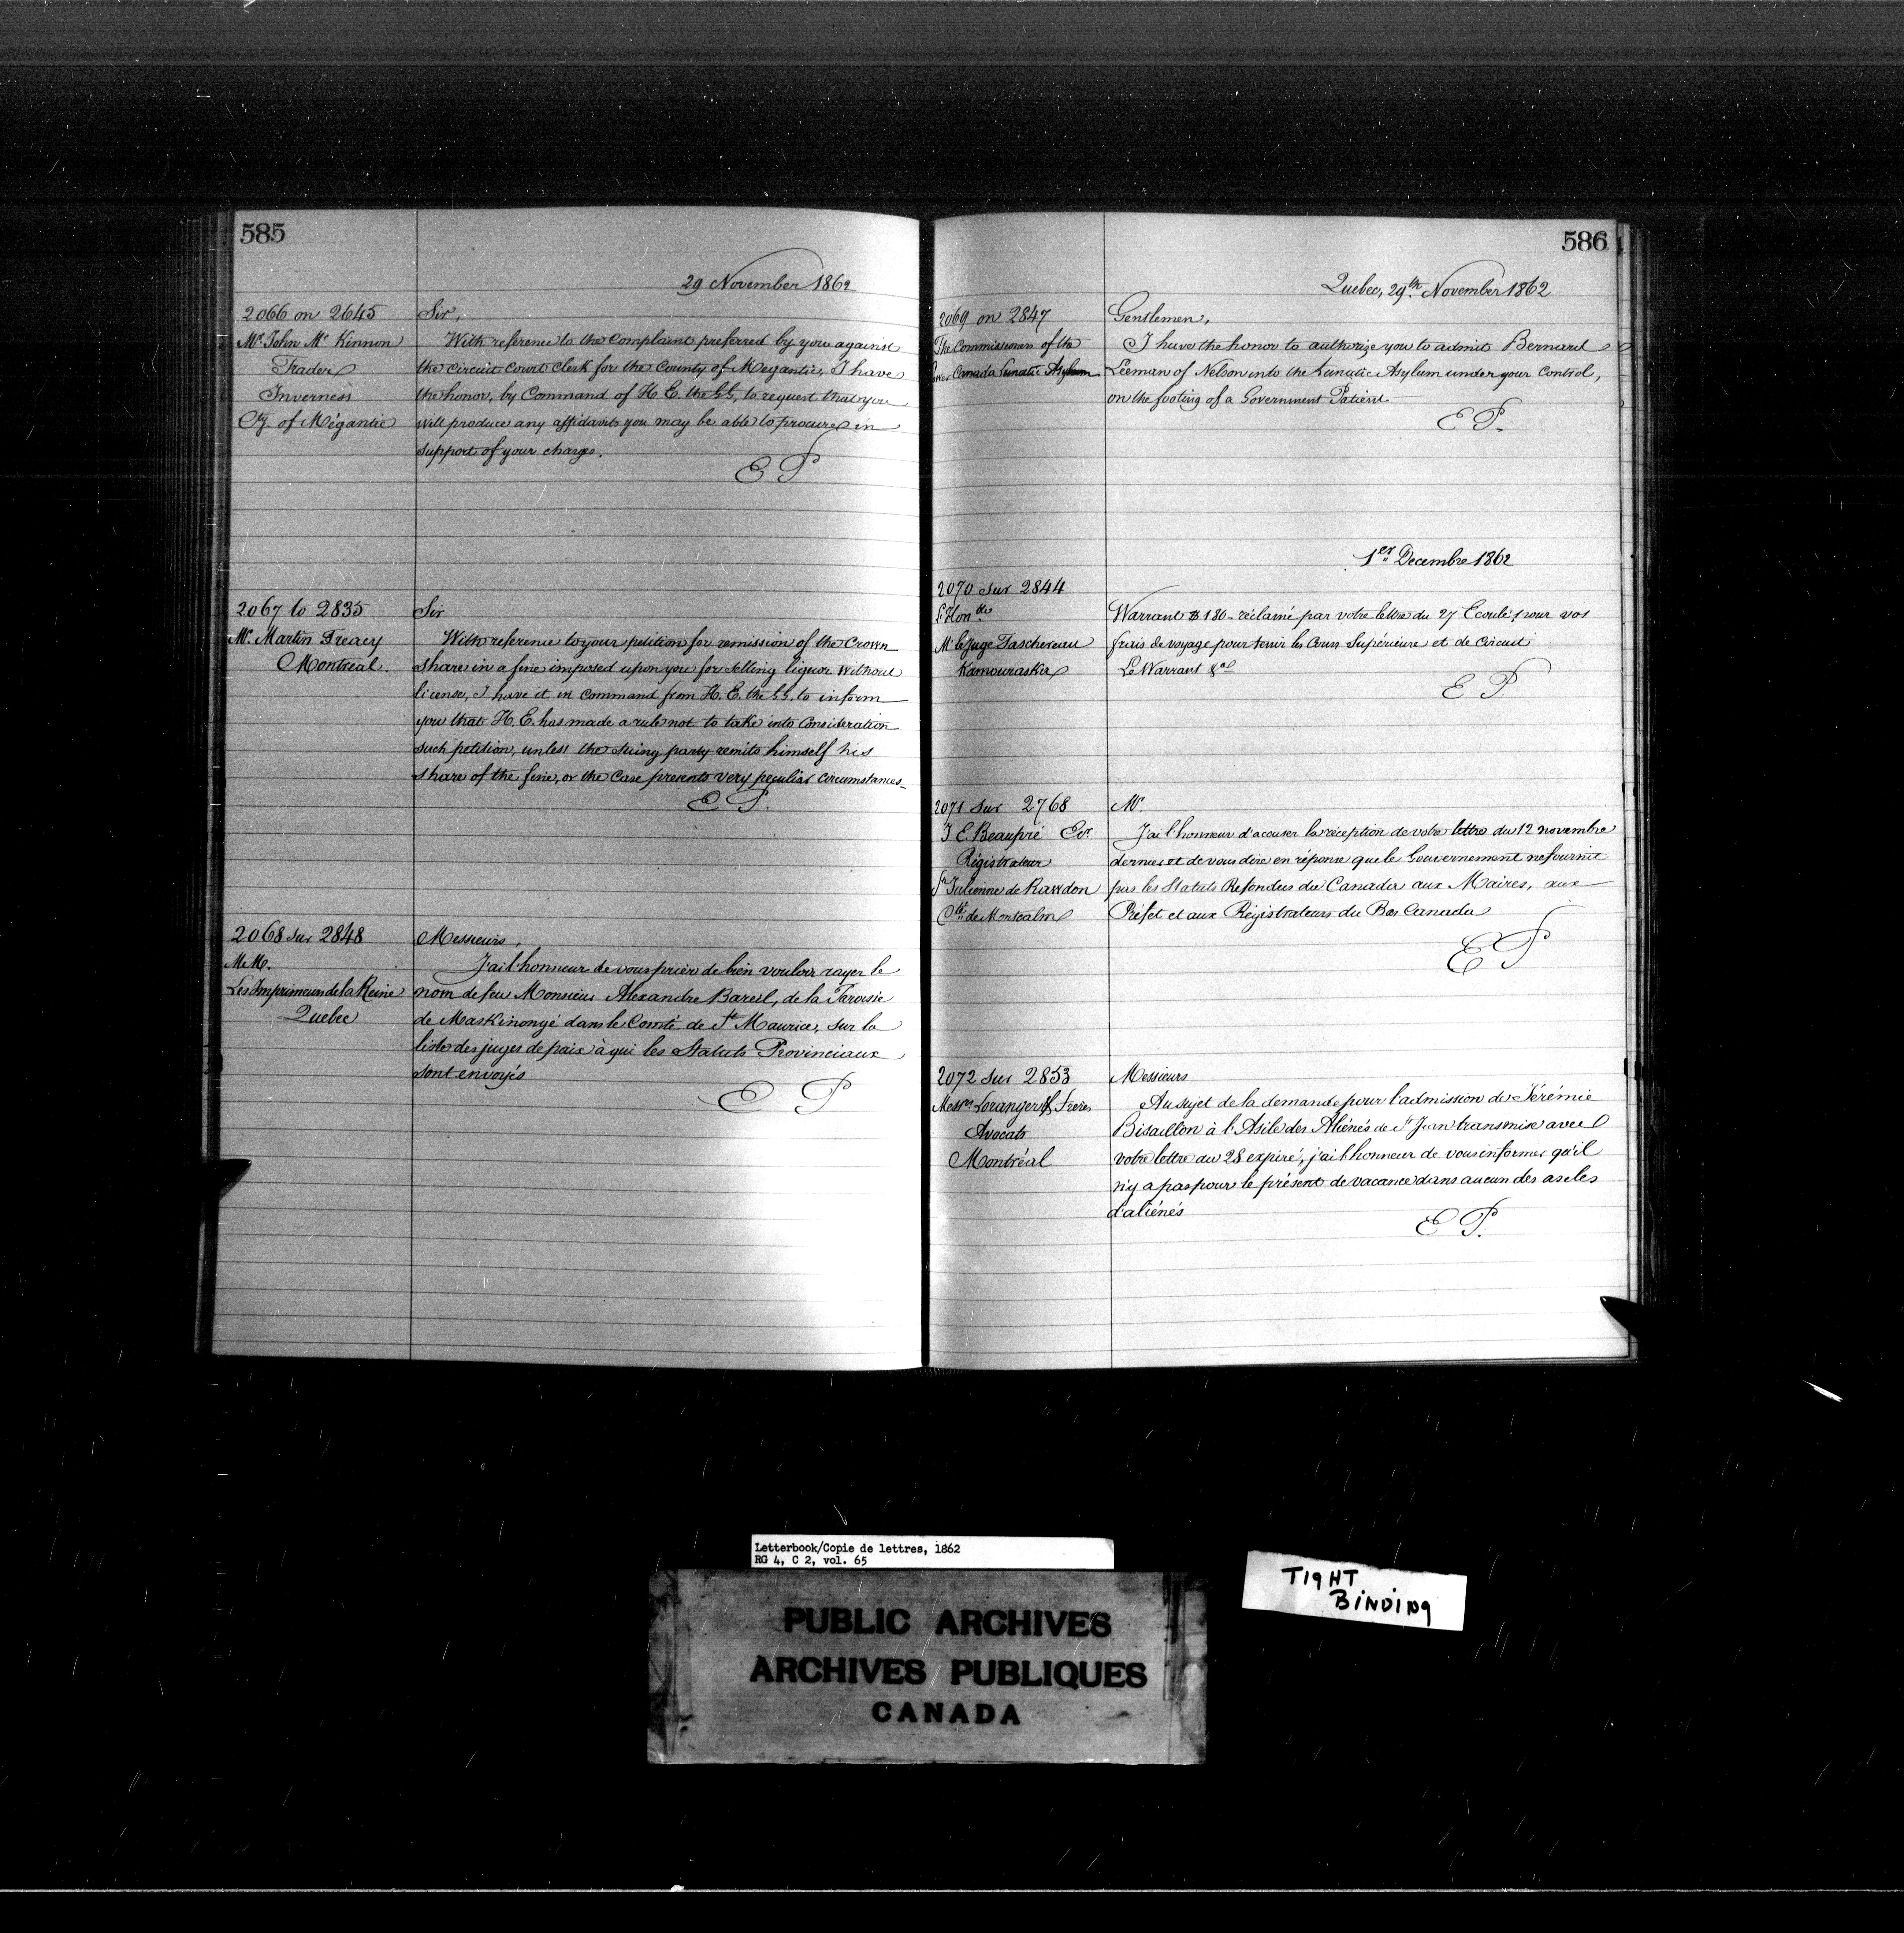 585
29 November 1862
2066 on 2645
Mr. John Mc Kinnon
Trader
Inverness
Cty. of Mégantic
Sir,
With reference to the complaint preferred by you against
the circuit court clerk for the County of Megantic, I have
the honor, by Command of H. E. the G.G. to request that you
will produce any affidavits you may be able to procure in
support of your charges.
E P
2067 to 2835
Mr. Martin Treacy
Montreal.
Sir
With reference to your petition for remission of the Crown
share in a fine imposed upon you for selling liquor without
license, I have it in command from H. E. the G.G. to inform
you that H. E. has made a rule not to take into consideration
such petition, unless the suing party remits himself his
share of the fine, or the case presents very peculiar circumstances_
E P.
2068 sur 2848
M.M.
Les Imprimeurs de la Reine
Quebec
Messieurs,
J'ai l'honneur de vous prier de bien vouloir rayer le
nom de feu Monsieur Alexandre Bareil, de la Paroisse
de Maskinongé dans le Comté de St Maurice, sur la
liste des juges de paix à qui les Statuts Provinciaux
sont envoyés
E P
586
Quebec, 29th. November 1862
2069 on 2847
The Commissioners of the
Lower Canada Lunatic Asylum
Gentlemen,
I have the honor to authorize you to admit Bernard
Leeman of Nelson into the Lunatic Asylum under your Control,
on the footing of a Government Patient.
E P.
1er Decembre 1862
2070 sur 2844
L'Honble
Mr le Juge Taschereau
Kamouraska
Warrant $180_ réclamé par votre lettre du 27 Ecoulé pour vos
frais de voyage pour tenir les Cours Supérieure et de Circuit
Le Warrant &a
E P.
2071 sur 2768
J E Beaupré Ecr.
Régistrateur
Ste Julienne de Rawdon
Cté de Montcalm
Mr.
J'ai l'honneur d'accuser la réception de votre lettre du 12 novembre
dernier et de vous dire en réponse que le Gouvernement ne fournit
pas les Statuts Refondus du Canada aux Maires, aux
Préfet et aux Régistrateurs du Bas Canada
E P
2072 sur 2853
Messrs Loranger & Frères
Avocats
Montréal
Messieurs
Au sujet de la demande pour l'admission de Jérémie
Bisaillon à l'Asile des Aliénés de St Jean transmise avec
votre lettre du 28 expiré, j'ai l'honneur de vous informer qu'il
n'y a pas pour le présent de vacance dans aucun des asiles
d'aliénés
E P.
Letterbook/Copie de lettres, 1862
RG 4, C 2, vol. 65
TIGHT
BINDING
PUBLIC ARCHIVES
ARCHIVES PUBLIQUES
CANADA